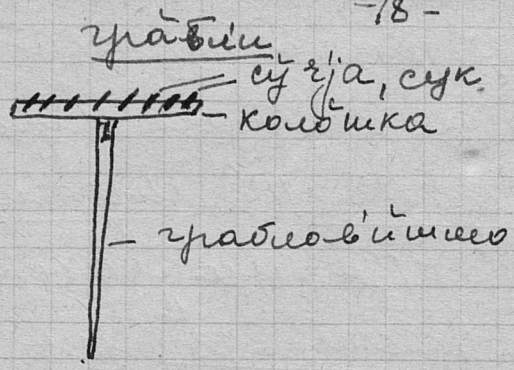 -18-
гра́бл'и
су́ч'jа, сук
коло́шка
граблов'и́шшо